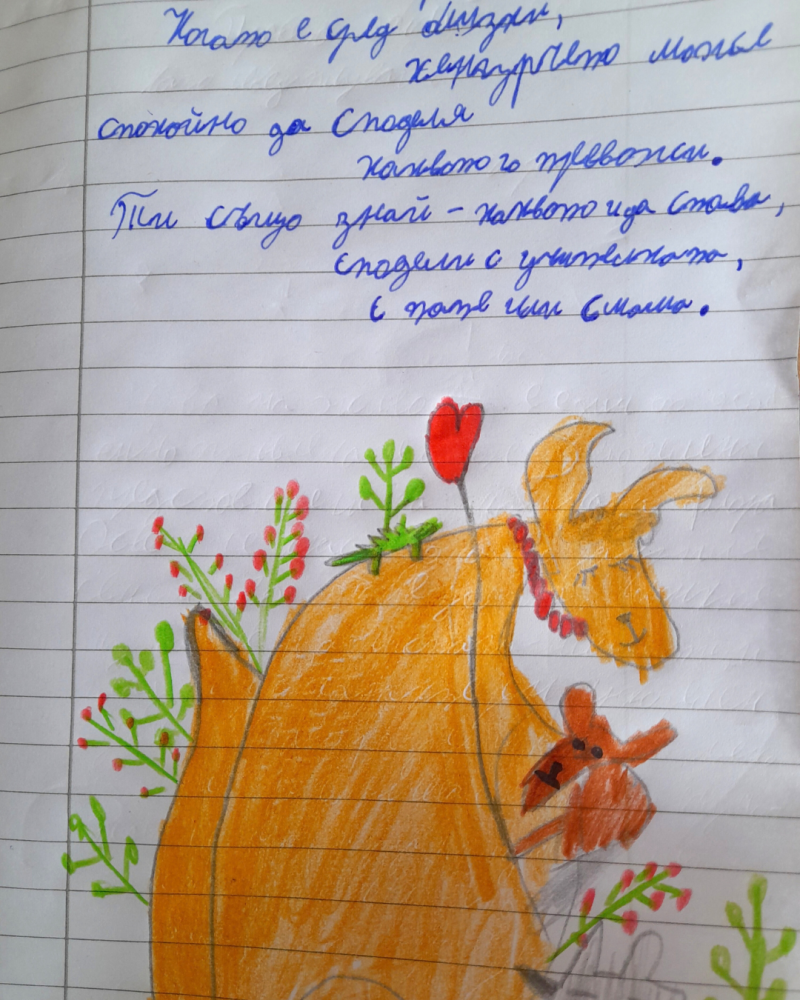 Когато е сред близки,
кенгурчето може
спокойно да споделя
каквото го тревожи.
Ти също знай - каквото и да става,
сподели с учителката,
с тате или с мама.